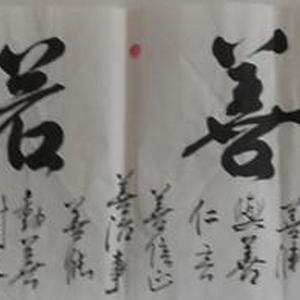 善若
善淵
與善
仁言
善信正
善治事
善能
動善